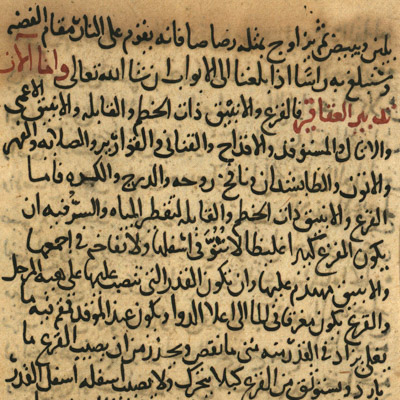 يلين ويبيض ثم يزاوج بمثله رصاصا فانه يقوم على النار مقام الفضة
وستبلغ به اذا بلغنا الى الابواب ان شا الله تعالى واما الالات
لتدبير العقاقير فالقرع والانبيق ذات الخطم والقابله والانبيق الاعمى
والاثال والمستوقد والاقداح والقناني والقوارير والصلايه والفهر
والاتون والطابشدان ونافخ روحه والدرج فاما
القرع والانبيق ذات الخطم والقابله لتقطير المياه والسر فيه ان
يكون القرع كبيرا غليظا لا نتو في اسفلها ولا نفاخه في اجمعها
والانبيق مهندم عليها وان تكون القدر التي تنصب عليها على هيه المرجل
والقرع يكون مغرقا في الما الى اعلا الدوا ويكون عند الموقد قمقم فيه ما
يغلي يزاد في القدر منه متى ما نقص ويحذر من ان يصيب القرع ما
بارد ويستوثق من القرع كيلا يتحرك ولا يصيب اسفله اسفل القدر